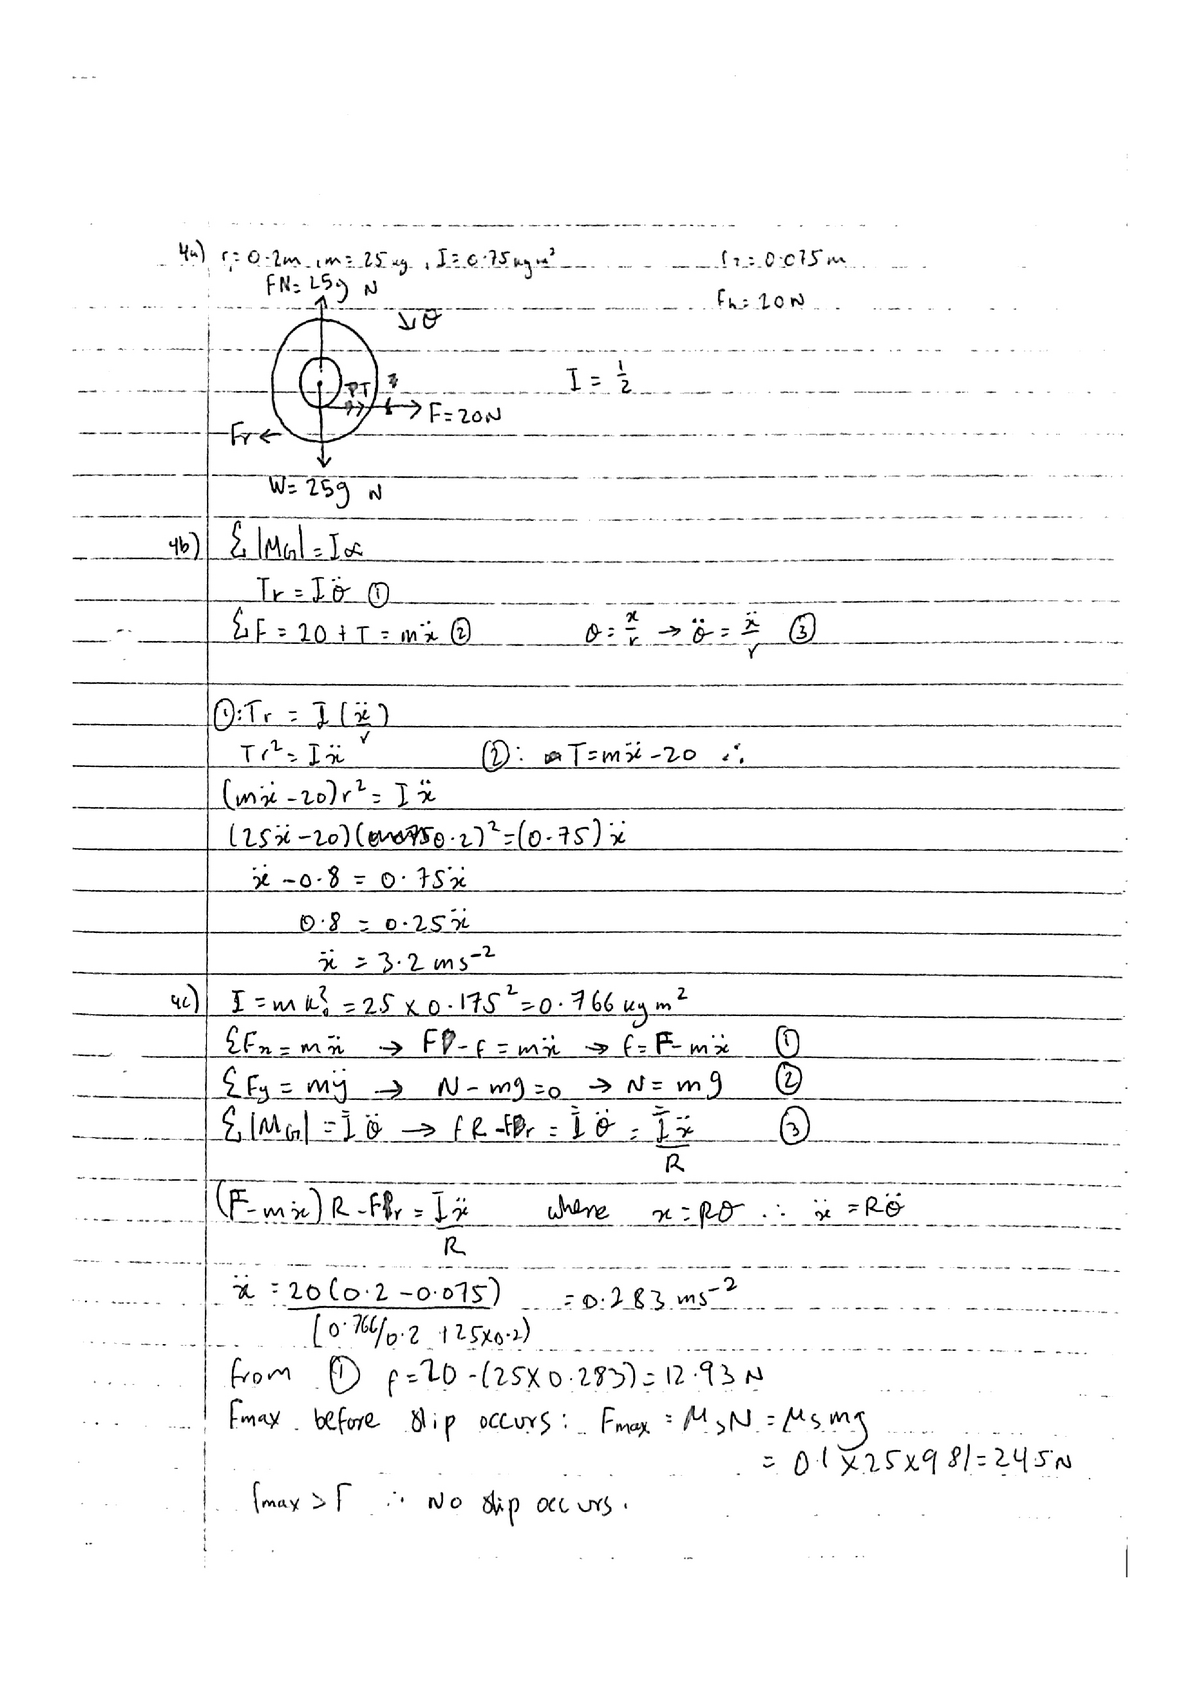 4a) r₁= 0.2m, m= 25 kg, I= 0.75 kgm² r₂= 0.075m
FN= 25g N
Fh= 20N
θ
I = 1/2
PT
F=20N
Fr
W= 25g N
4b) Σ|MG| = I∝
Tr = Iθ̈ ①
ΣF = 20 + T = mẍ ② θ = x/r → θ̈ = ẍ/r ③
①: Tr = I(ẍ/r)
Tr² = Iẍ ②: T=mẍ-20 ∴
(mẍ - 20)r² = Iẍ
(25ẍ-20)(0.2)²=(0.75)ẍ
ẍ - 0.8 = 0.75ẍ
0.8 = 0.25ẍ
ẍ = 3.2 ms⁻²
4c) I = mk₀² = 25 × 0.175² = 0.766 kgm²
ΣFx = mẍ → F - f = mẍ → f = F - mẍ ①
ΣFy = mÿ → N - mg = 0 → N = mg ②
Σ|MG| = Īθ̈ → fR - Fr = Īθ̈ = Īẍ/R ③
(F - mẍ)R - Fr = Iẍ/R where x = Rθ ∴ ẍ = Rθ̈
ẍ = 20(0.2 - 0.075) / (0.766/0.2 + 25×0.2) = 0.283 ms⁻²
from ① f = 20 - (25 × 0.283) = 12.93 N
Fmax before slip occurs: Fmax = μsN = μsmg
= 0.1 × 25 × 9.81 = 24.5N
fmax > f ∴ No slip occurs.